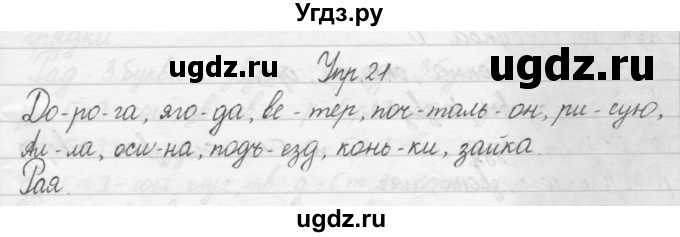 Угдз.ру
ugdz.ru ugdz.ru
Упр 21.
До-ро-га, яго-да, ве-тер, поч-таль-он, ри-сую,
Ал-ла, оси-на, подъ-езд, конь-ки, зайка.
Рая.
ugdz.ru ugdz.ru
ugdz.ru